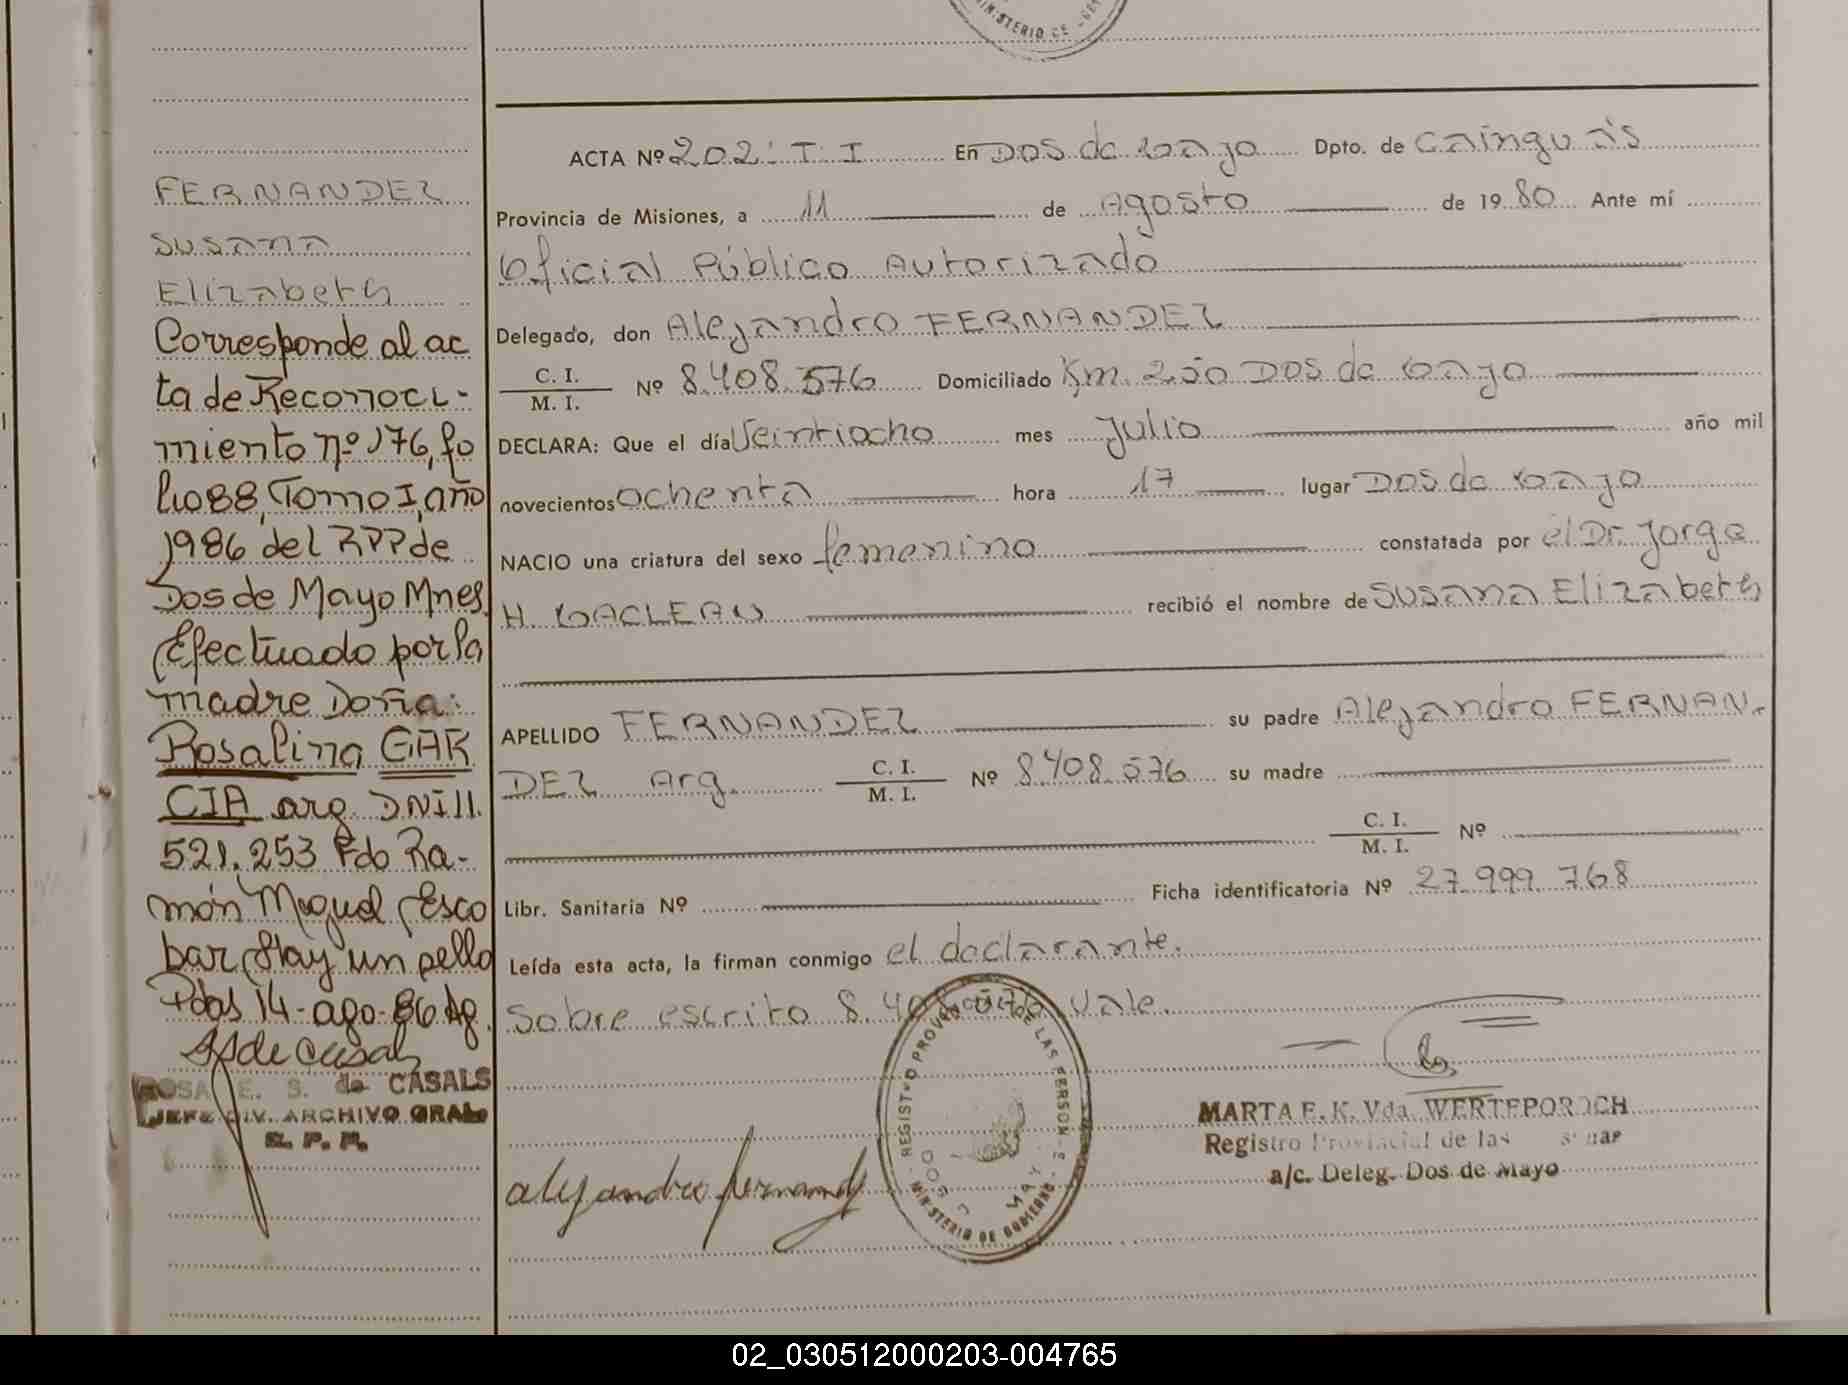 MINISTERIO DE
FERNANDEZ
SUSANA
Elizabeth
Corresponde al ac
ta de Reconoci-
miento nº 176, fo
lio 88, Tomo I, año
1986 del RPP de
Dos de Mayo Mnes.
Efectuado por la
madre Doña:
Rosalina GAR
CIA arg. DNI 11.
521.253 Fdo Ra-
món Miguel Esco
bar, Hay un sello
Pdas 14-ago-86 Ag.
ROSA E. S. de CASALS
JEFE DIV. ARCHIVO GRAL.
R. P. P.
ACTA Nº 202: T: I En Dos de Mayo Dpto. de Cainguás
Provincia de Misiones, a 11 de Agosto de 1980 Ante mí
Oficial Público Autorizado
Delegado, don Alejandro FERNANDEZ
C. I. / M. I. Nº 8.408.576 Domiciliado Km. 250 Dos de Mayo
DECLARA: Que el día Veintiocho mes Julio año mil
novecientos ochenta hora 17 lugar Dos de Mayo
NACIO una criatura del sexo femenino constatada por el Dr. Jorge
H. MACLEAN recibió el nombre de Susana Elizabeth
APELLIDO FERNANDEZ su padre Alejandro FERNAN-
DEZ Arg. C. I. / M. I. Nº 8.408.576 su madre
C. I. / M. I. Nº
Libr. Sanitaria Nº Ficha identificatoria Nº 27.999.768
Leída esta acta, la firman conmigo el declarante.
Sobre escrito 8.408.576 Vale.
REGISTRO PROV. DE LAS PERSONAS
DOS DE MAYO
MINISTERIO DE GOBIERNO
alejandro fernandez
MARTA E. K. Vda. WERTEPOROCH
Registro Provincial de las
a/c. Deleg. Dos de Mayo
02_030512000203-004765